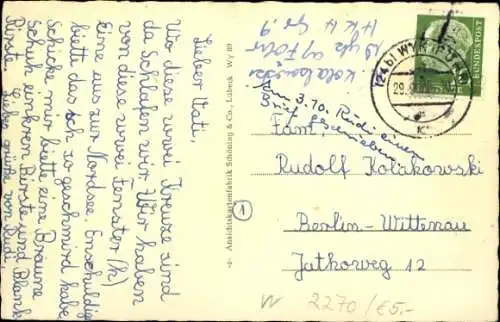 Lieber Vati,
Wo diese zwei Kreuze sind
da schlafen wir. Wir haben
von diese zwei Fenster (h)
Eine aus zur Nordsee. Enschuldige
biette das ich so geschmird habe
Schicke mir biette eine Braune
Schuh einkrem Bürste und Blank
Bürste. Liebe grüße von Rudi.
Ansichtskartenfabrik Schöning & Co., Lübeck Wy 89
Wyk a/Föhr
H K H Gr. 9
Am 3.10. Rudi einen
Brief geschrieben
(24b) WYK (FÖHR)
29.9.
DEUTSCHE BUNDESPOST
Fam.
Rudolf Kolakowski
Berlin-Wittenau
Jathoweg 12
W 2270 / €5,-